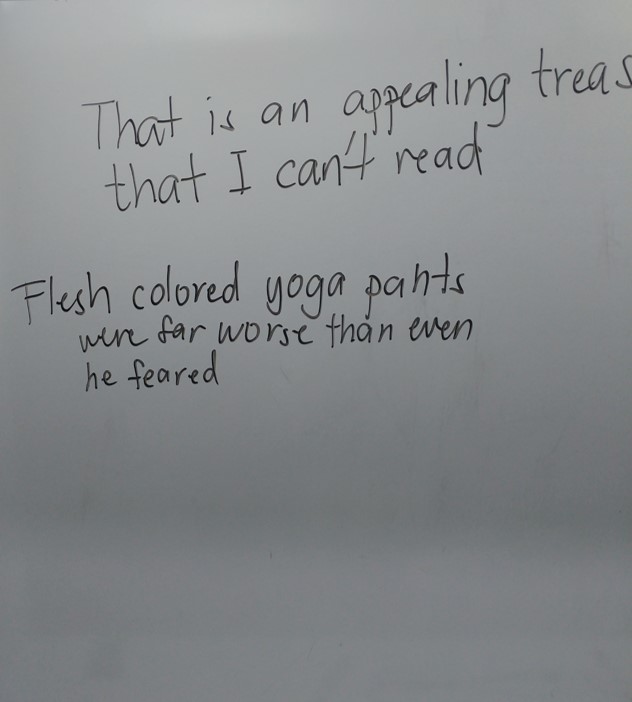 That is an appealing treas
that I can't read
Flesh colored yoga pants
were far worse than even
he feared